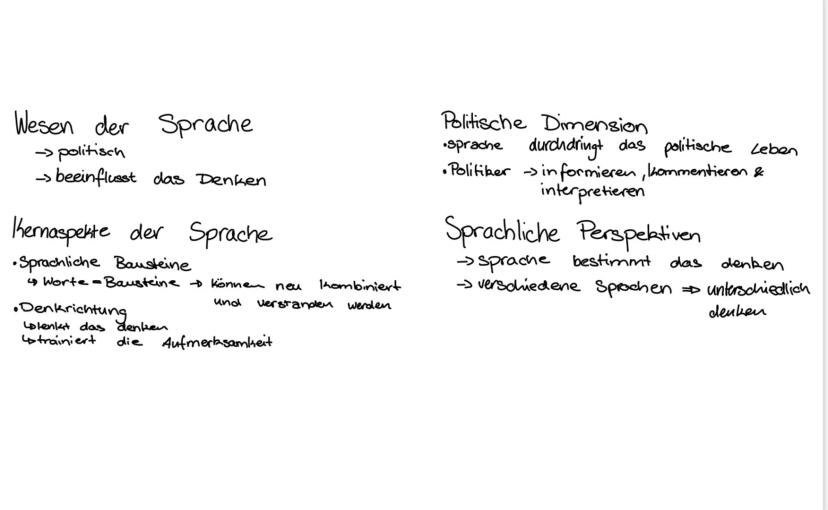 Wesen der Sprache
→ politisch
→ beeinflusst das Denken
Kernaspekte der Sprache
• Sprachliche Bausteine
↳ Worte = Bausteine → können neu kombiniert
und verstanden werden
• Denkrichtung
↳ lenkt das denken
↳ trainiert die Aufmerksamkeit
Politische Dimension
• sprache durchdringt das politische Leben
• Politiker → informieren, kommentieren &
interpretieren
Sprachliche Perspektiven
→ sprache bestimmt das denken
→ verschiedene Sprachen ⇒ unterschiedlich
denken